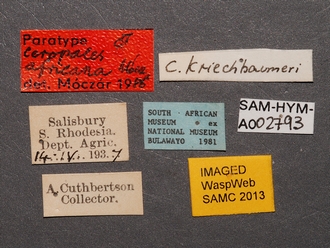 Paratype ♂
Ceropales
africana Móczár
det. Móczár 1986
C. Kriechbaumeri
Salisbury
S. Rhodesia.
Dept. Agric.
14. IV. 1937
SOUTH AFRICAN
MUSEUM * ex
NATIONAL MUSEUM
BULAWAYO 1981
SAM-HYM-
A002793
A. Cuthbertson
Collector.
IMAGED
WaspWeb
SAMC 2013